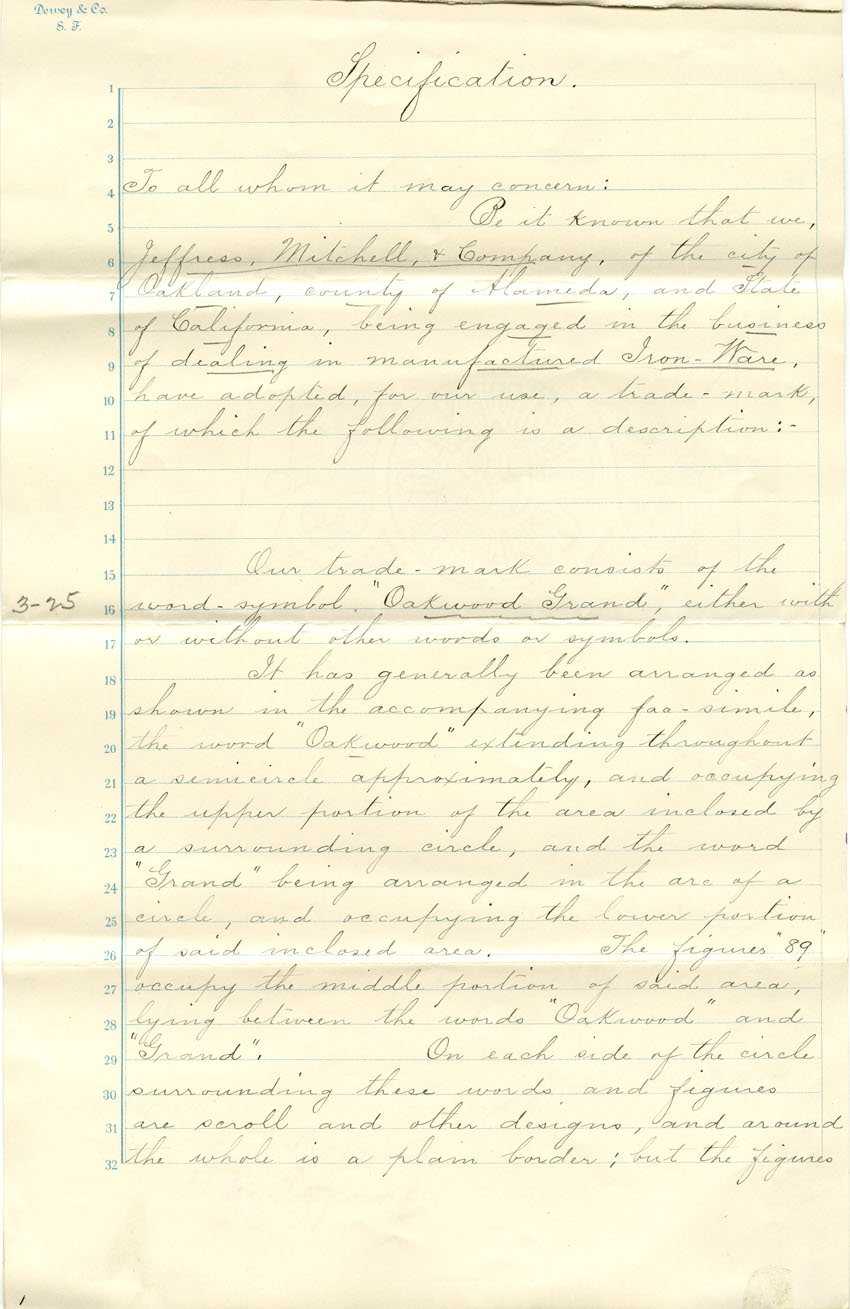 Dewey & Co.
S. F.
Specification.
1
2
3
4 To all whom it may concern:
5 Be it known that we,
6 Jeffress, Mitchell, & Company, of the city of
7 Oakland, county of Alameda, and State
8 of California, being engaged in the business
9 of dealing in manufactured Iron-Ware,
10 have adopted, for our use, a trade-mark,
11 of which the following is a description:-
12
13
14
15 Our trade-mark consists of the
3-25
16 word-symbol "Oakwood Grand", either with
17 or without other words or symbols.
18 It has generally been arranged as
19 shown in the accompanying fac-simile,
20 the word "Oakwood" extending throughout
21 a semicircle approximately, and occupying
22 the upper portion of the area inclosed by
23 a surrounding circle, and the word
24 "Grand" being arranged in the arc of a
25 circle, and occupying the lower portion
26 of said inclosed area. The figures "89"
27 occupy the middle portion of said area,
28 lying between the words "Oakwood" and
29 "Grand". On each side of the circle
30 surrounding these words and figures
31 are scroll and other designs, and around
32 the whole is a plain border; but the figures